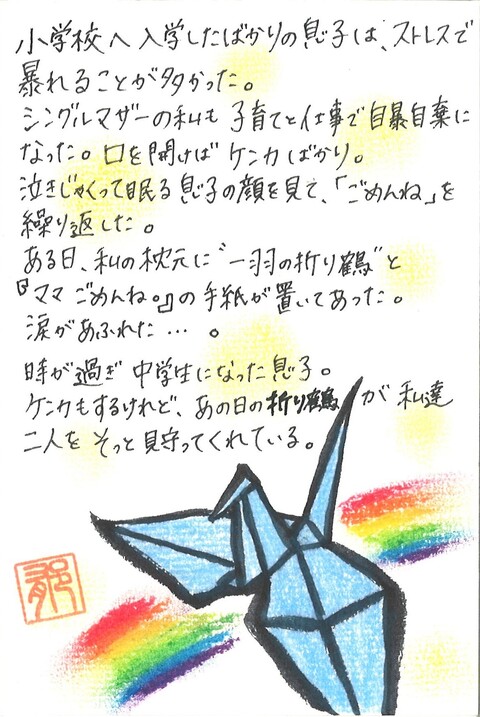 小学校へ入学したばかりの息子は、ストレスで
暴れることが多かった。
シングルマザーの私も子育てと仕事で自暴自棄に
なった。口を開けばケンカばかり。
泣きじゃくって眠る息子の顔を見て、「ごめんね」を
繰り返した。
ある日、私の枕元に“一羽の折り鶴”と
『ママ ごめんね。』の手紙が置いてあった。
涙があふれた… 。
時が過ぎ中学生になった息子。
ケンカもするけれど、あの日の折り鶴が私達
二人をそっと見守ってくれている。